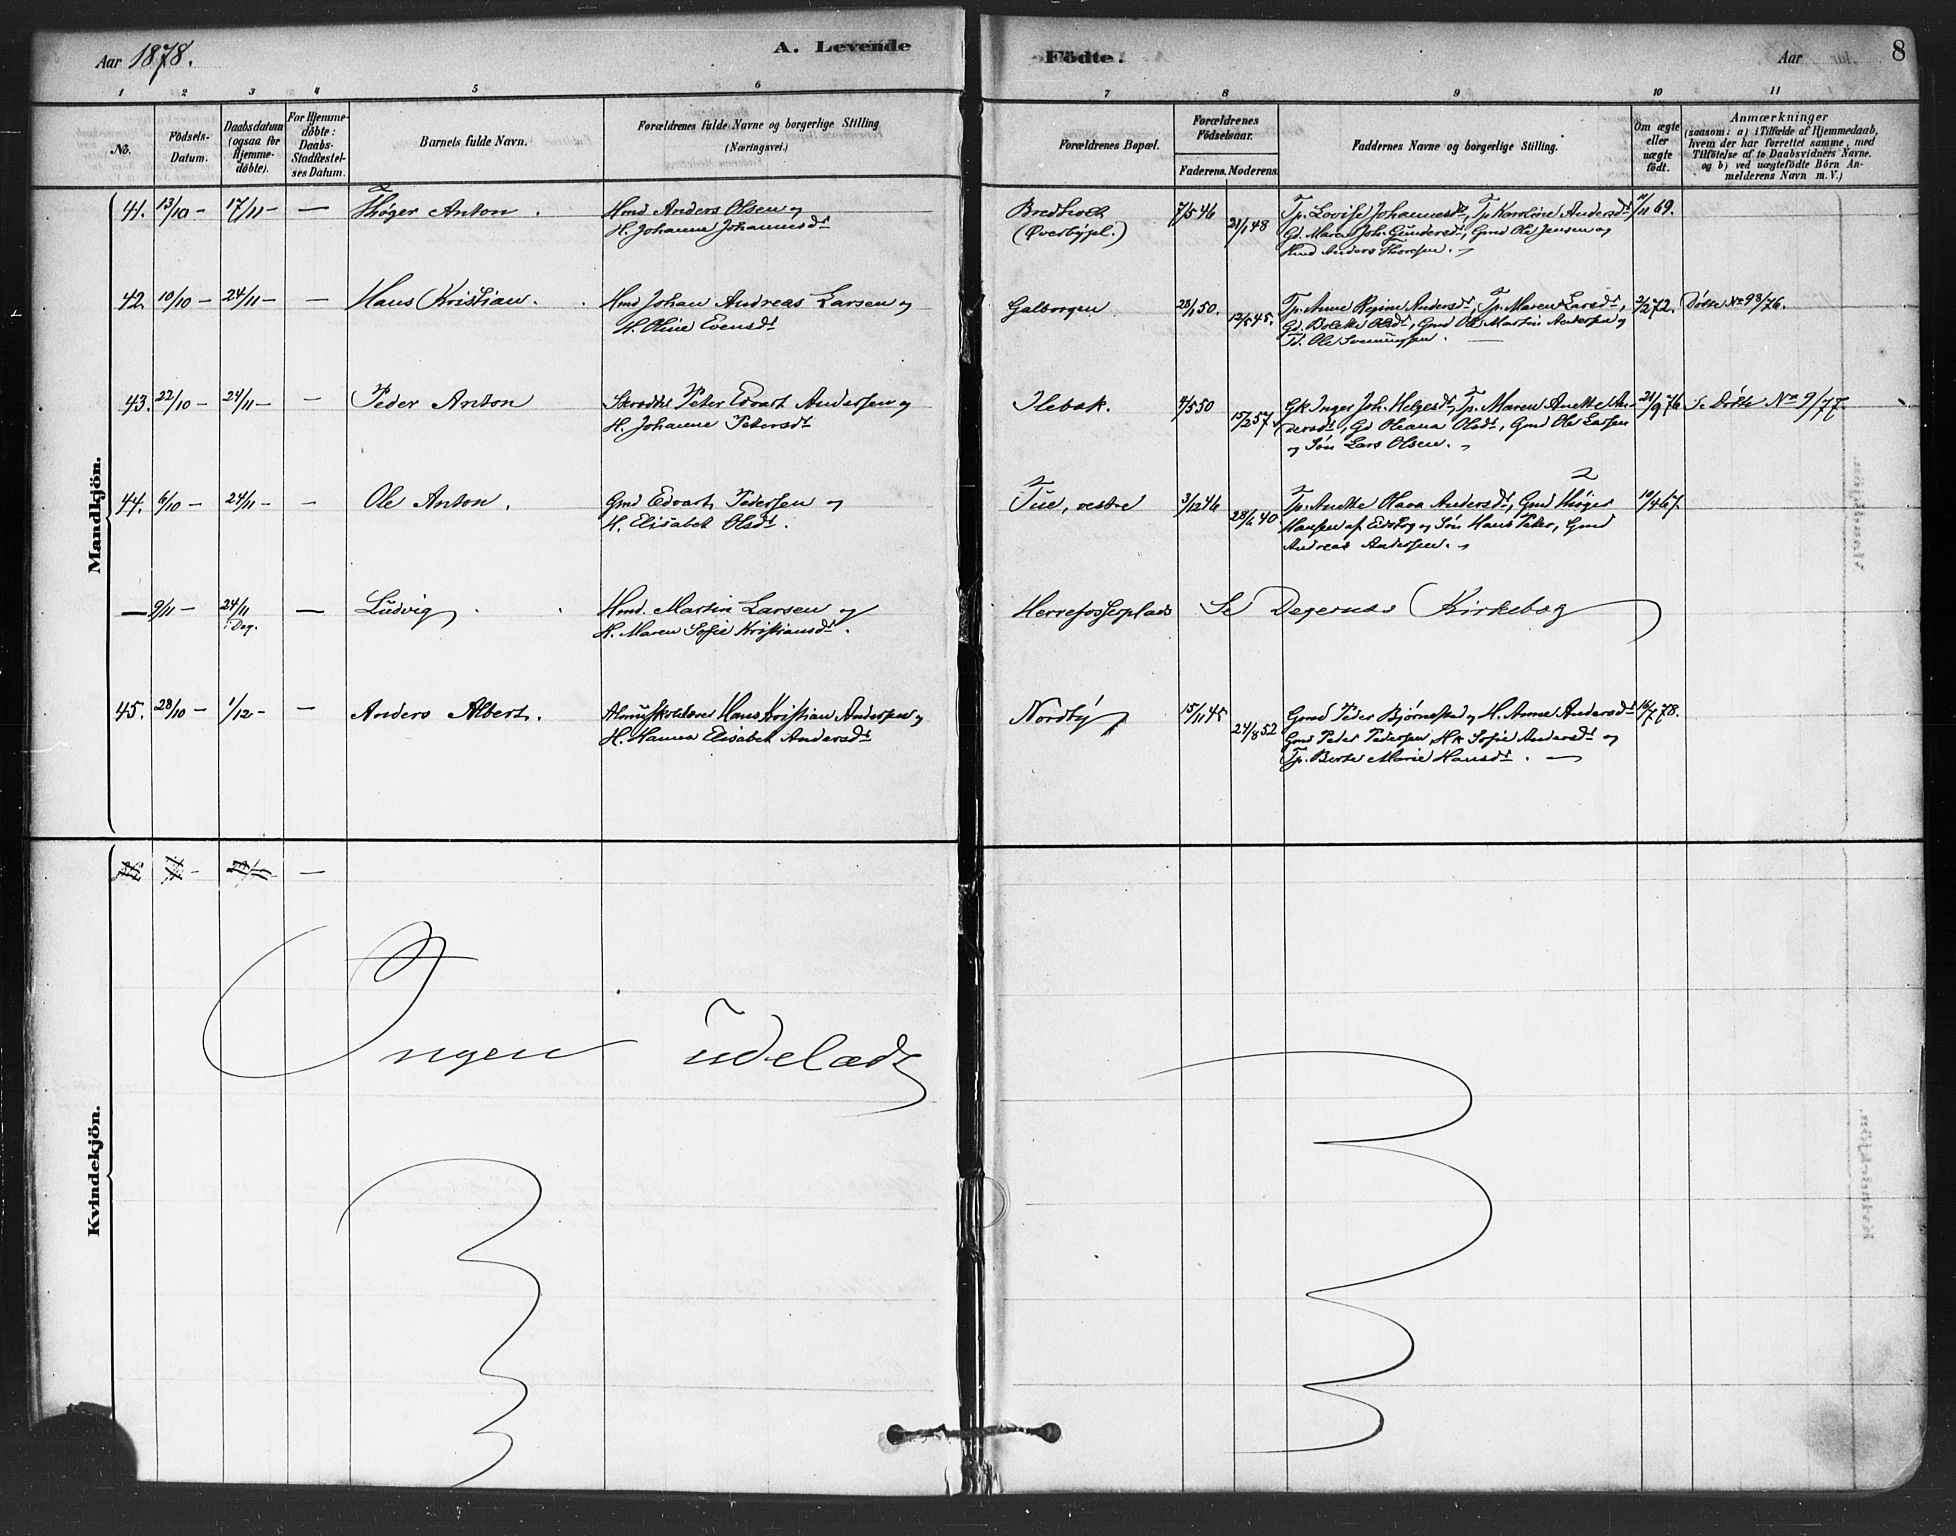 Aar 1878.
A. Levende
Födte.
Aar
8
1 2 3 4 5 6 7 8 9 10 11
No.
Födsels-Datum.
Daabsdatum (ogsaa för Hjemme-döbte).
For Hjemme-döbte: Daabs-Stadfæstel-ses Datum.
Barnets fulde Navn.
Forældrenes fulde Navne og borgerlige Stilling
(Næringsvei.)
Forældrenes Bopæl.
Forældrenes Födselsaar.
Faderens. Moderens.
Faddernes Navne og borgerlige Stilling.
Om ægte eller uægte födt.
Anmærkninger
(saasom: a) i Tilfælde af Hjemmedaab, hvem der har forrettet samme, med Tilföielse af to Daabsvidners Navne. og b) ved uægtefödte Börn An-melderens Navn m. V.)
Mandkjön.
41. 13/10 - 17/11 - — Thöger Anton . Hmd Anders Olsen og
H. Johanne Johannesdr
Bredholt
(Øverbýpl.)
7/5 46 21/1 48
Tp. Lovise Johannesdr, Tp Karoline Andersdr
Gd. Maren Joh. Gundersdr, Gmd Ole Jensen og
Hmd Anders Thoresen.
/11 69.
42. 10/10 - 24/11 - — Hans Kristian. Hmd Johan Andreas Larsen og
H. Oline Evensdr
Galborgen
28/1 50. 12/5 45.
Tp. Anne Regine Andersdr, Tp. Maren Larsdr,
Gd. Bolette Olsdr, Gmd Ole Martin Andersen og
Td. Ole Svenningsen.
2/2 72. Döbte No 98/76.
43. 22/10 - 24/11 - — Peder Anton Skrædder Peter Edvart Andersen og
H. Johanne Petersdr
Ilebæk.
4/5 50 15/2 57
Gk Inger Joh. Helgesdr, Tp. Maren Anette An-
dersdr, Gd Oleana Olsdr, Gmd Ole Larsen
og Sön Lars Olsen.
21/9 76 Se Döbte No 9/77
44. 6/10 - 24/11 - — Ole Anton. Gmd Edvart Pedersen og
H. Elisabet Olsdr.
Tue, vestre
3/12 46 28/6 40
Tp. Anette Olava Andersdr, Gmd Thöger
Hansen af Eidsbog og Sön Hans Peter, Gmd
Andreas Andersen.
10/4 67.
— 9/11 - 24/11 i Deg. — Ludvig Hmd. Martin Larsen og
H. Maren Sofie Kristiansdr.
Herrefosserplads Se Degernes Kirkebog
45. 28/10 - 1/12 - — Anders Albert. Almueskolelærer Hans Kristian Andersen og
H. Hanna Elisabet Andersdr
Nordbý
15/11 45 24/8 52
Gmd Peder Bjørnestad og H. Anne Andersdr
Gmd Peder Pedersen, Hk Sofie Andersdr og
Tp. Berte Marie Hansdr.
16/7 78.
Kvindekjön.
Ingen udeladt